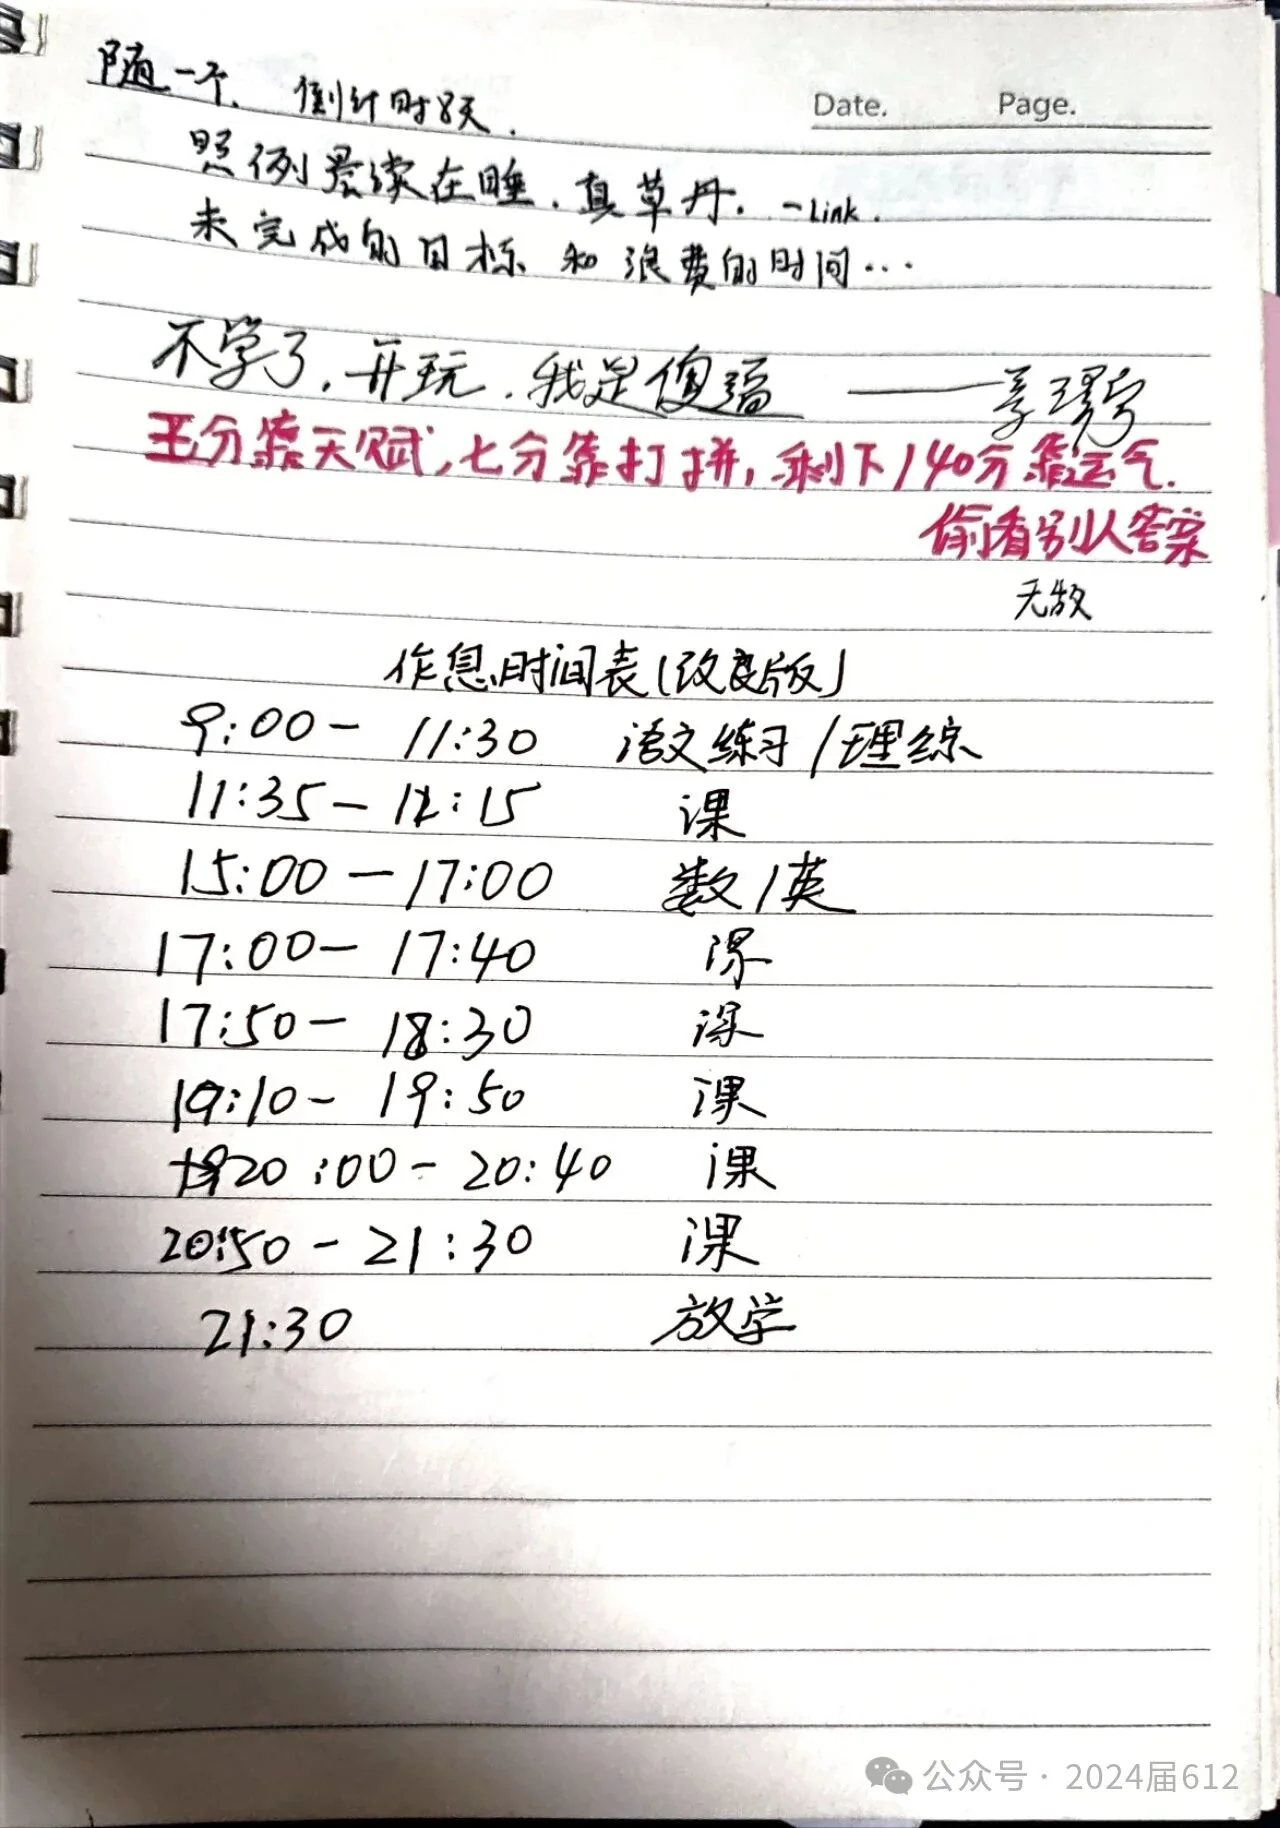 随一个. 倒计时8天.
Date. Page.
照例晨读在睡.真草丹. -Link.
未完成的目标 和 浪费的时间...
不学了,开玩.我是傻逼 ——
三分靠天赋,七分靠打拼,剩下140分靠运气.
偷看别人答案
无敌
作息时间表(改良版)
9:00- 11:30 语文练习/理综
11:35-12:15 课
15:00-17:00 数/英
17:00- 17:40 课
17:50- 18:30 课
19:10- 19:50 课
20:00-20:40 课
20:50-21:30 课
21:30 放学
公众号·2024届612